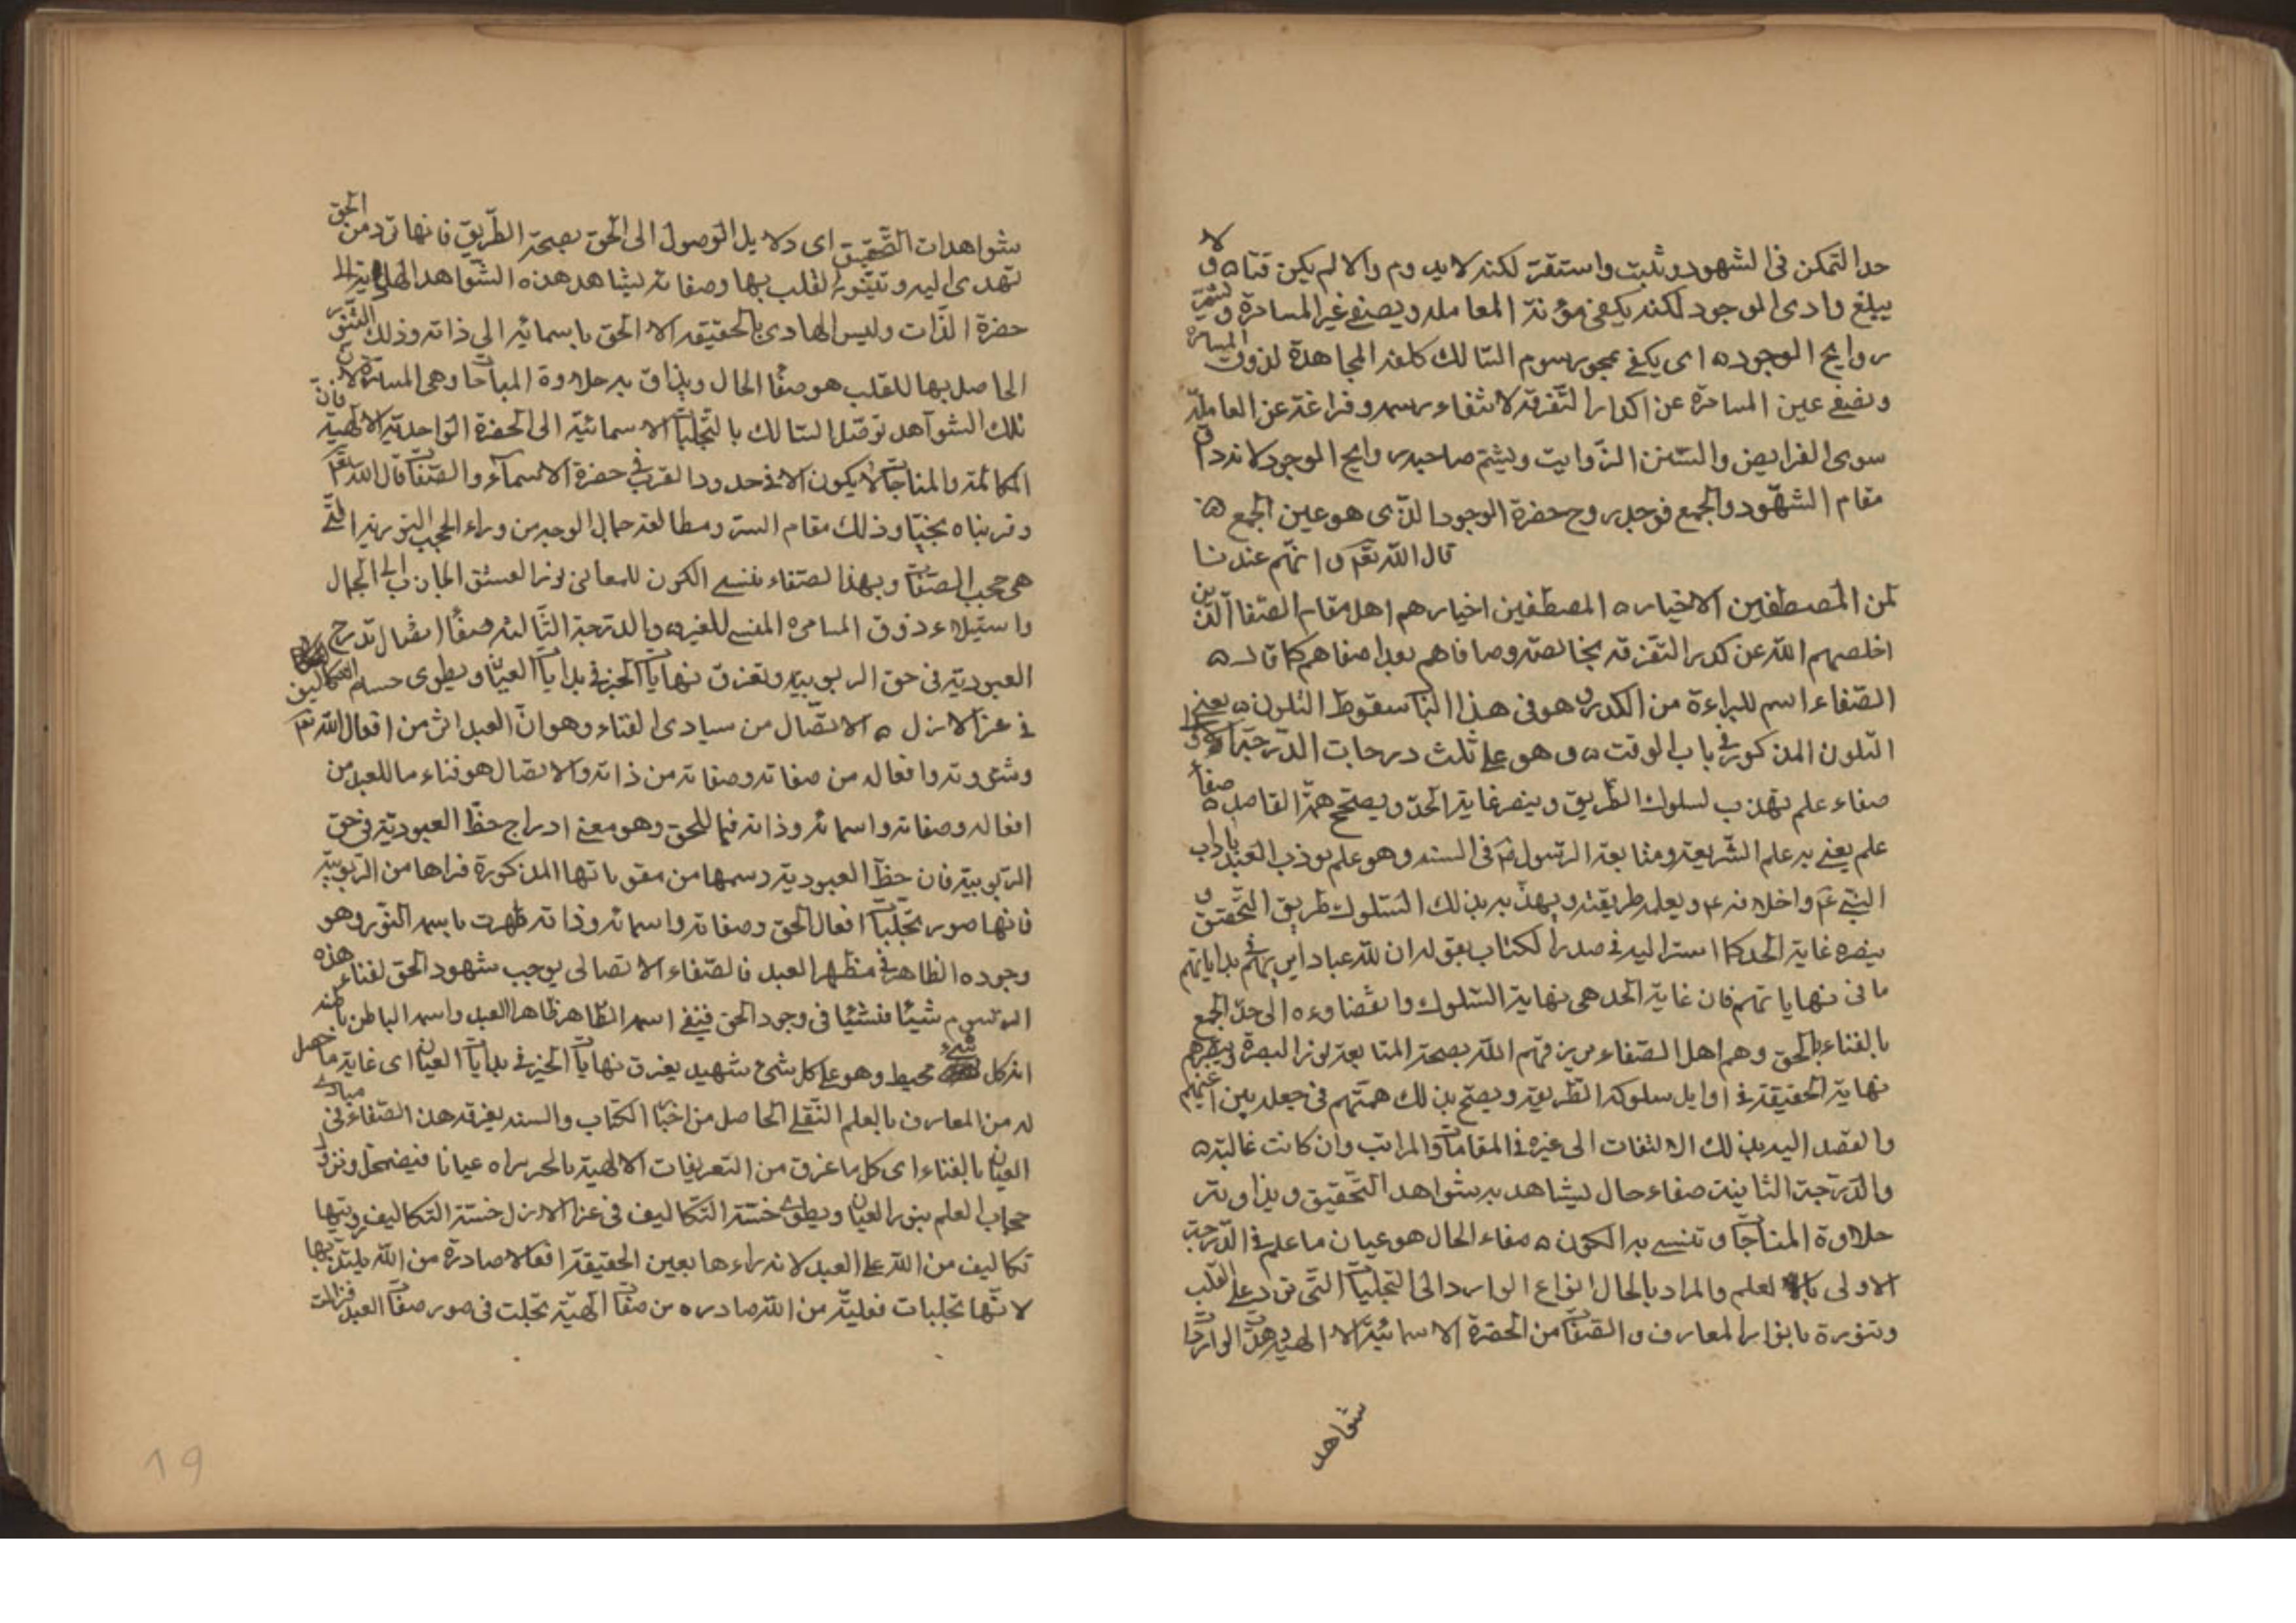 حد التمكن فى الشهود وثبت واستقر لكنه لا يدوم والا لم يكن وقتا ه و لا
يبلغ وادى الوجود لكنه يكفى مؤنة المعاملة ويصفى عين المسامرة ويشم
روايح الوجود ه اى يكفى بمحو رسوم السالك كلفة المجاهدة لذوق المسامرة
ويصفى عين المسامرة عن اكدار التفرقة لانتفاء رسمه وفراغته عن المعاملة
سوى الفرايض والسنن الرواتب ويشم صاحبه روايح الوجود لانه ذاق
مقام الشهود والجمع فوجد روح حضرة الوجود الذى هو عين الجمع ه
قال الله تعم وانهم عندنا
لمن المصطفين الاخيار ه المصطفين اخيارهم اهل مقام الصفا الذين
اخلصهم الله عن كدر التفرقة بخالصته وصافاهم بعد اصفاهم كما قال ه
الصفاء اسم للبراءة من الكدر وهو فى هذا الباب سقوط التلون ه يعنى
التلون المذكور فى باب الوقت ه وهو على ثلث درجات الدرجة الاولى
صفاء علم يهذب لسلوك الطريق ويبصر غاية الجد ويصحح همة القاصد ه صفا
علم يعنى به علم الشريعة ومتابعة الرسول فى السنة وهو علم يؤدب العبد باداب
النبى عم واخلاقه ويعلمه طريقته ويهذبه بذلك لسلوك طريق التحقق و
يبصره غاية الجد كما اشر اليه فى صدر الكتاب بقوله ان لله عبادا يريهم فى بداياتهم
ما فى نهاياتهم فان غاية الجد هى نهاية السلوك وانقضاؤه الى حد الجمع
بالفناء بالحق وهم اهل الصفاء يرزقهم الله بصحة المتابعة نور البصرة ويبصرهم
نهاية الحقيقة فى اوايل سلوكه الطريقة ويصح بذلك همتهم فى جعله بين اعينهم
والقصد اليه بذلك الالتفات الى غيره فى المقامات والمراتب وان كانت غالية ه
والدرجة الثانية صفاء حال يشاهد به شواهد التحقيق ويذاق به
حلاوة المناجات وتنسى به الكون ه صفاء الحال هو عيان ما علم فى الدرجة
الاولى بالعلم والمراد بالحال انواع الوارد الى التجليات التى ترد على القلب
وتنوره بانوار المعارف والصفات من الحضرة الاسمائية الالهية وهذه الواردات
شواهد
شواهدات التحقيق اى دلايل الوصول الى الحق بصحة الطريق فانها ترد من الحق
تهدى اليه وتتنور القلب بها وصفاته ليشاهد هذه الشواهد الهادية الى
حضرة الذات وليس الهادى بالحقيقة الا الحق باسمائه الى ذاته وذلك التنور
الحاصل بها للقلب هو صفا الحال ويذاق به حلاوة المناجات وهى المسامرة لان
تلك الشواهد توصل السالك بالتجليات الاسمائية الى الحضرة الواحدية الالهية فان
المكالمة والمناجات لا يكون الا فى حدود القرب فى حضرة الاسماء والصفات قال الله تعم
وقربناه نجيا وذلك مقام السر ومطالعة جمال الوجه من وراء الحجب النورية التى
هى حجب الصفات وبهذا الصفاء ننسى الكون للمعانى نور العشق الجاذب الى الجمال
واستيلاء ذوق المسامرة المنسى للغير ه والدرجة الثالثة صفا اتصال تدرج
العبودية فى حق الربوبية وتغرق نهايات الخبر فى بدايات العيان ويطوى خسة التكاليف
فى عز الازل ه الاتصال من مبادى الفناء وهو ان العبد اثر من افعال الله تعم
وشئونه وافعاله من صفاته وصفاته من ذاته والاتصال هو فناء ما للعبد من
افعاله وصفاته واسمائه وذاته فيما للحق وهو معنى ادراج حظ العبودية فى حق
الربوبية فان حظ العبودية رسمها من مقوماتها المذكورة فراها من الربوبية
فانها صور تجليات افعال الحق وصفاته واسمائه وذاته ظهرت باسمه النور وهو
وجوده الظاهر فى مظهر العبد فالصفاء الاتصالى يوجب شهود الحق لفناء هذه
الرسوم شيئا فشيئا فى وجود الحق فيفنى اسمه الظاهر ظاهر العبد واسمه الباطن باطنه
انه كل شىء محيط وهو على كل شىء شهيد يغرق نهايات الخبر فى بدايات العيان اى غاية ما حصل
له من المعارف بالعلم النقلى الحاصل من اخبار الكتاب والسنة يغرقه هذا الصفاء فى مبادى
العيان بالفناء اى كل ما عرف من التعريفات الالهية بالخبر يراه عيانا فيضمحل ويزول
حجاب العلم بنور العيان ويطوى خسة التكاليف فى عز الازل خسة التكاليف رويتها
تكاليف من الله على العبد لانه يراءها بعين الحقيقة افعالا صادرة من الله يلتذ بها
لانها تجليات فعلية من الله صادره من صفات الهية تجلت فى صور صفات العبد فزالت
19